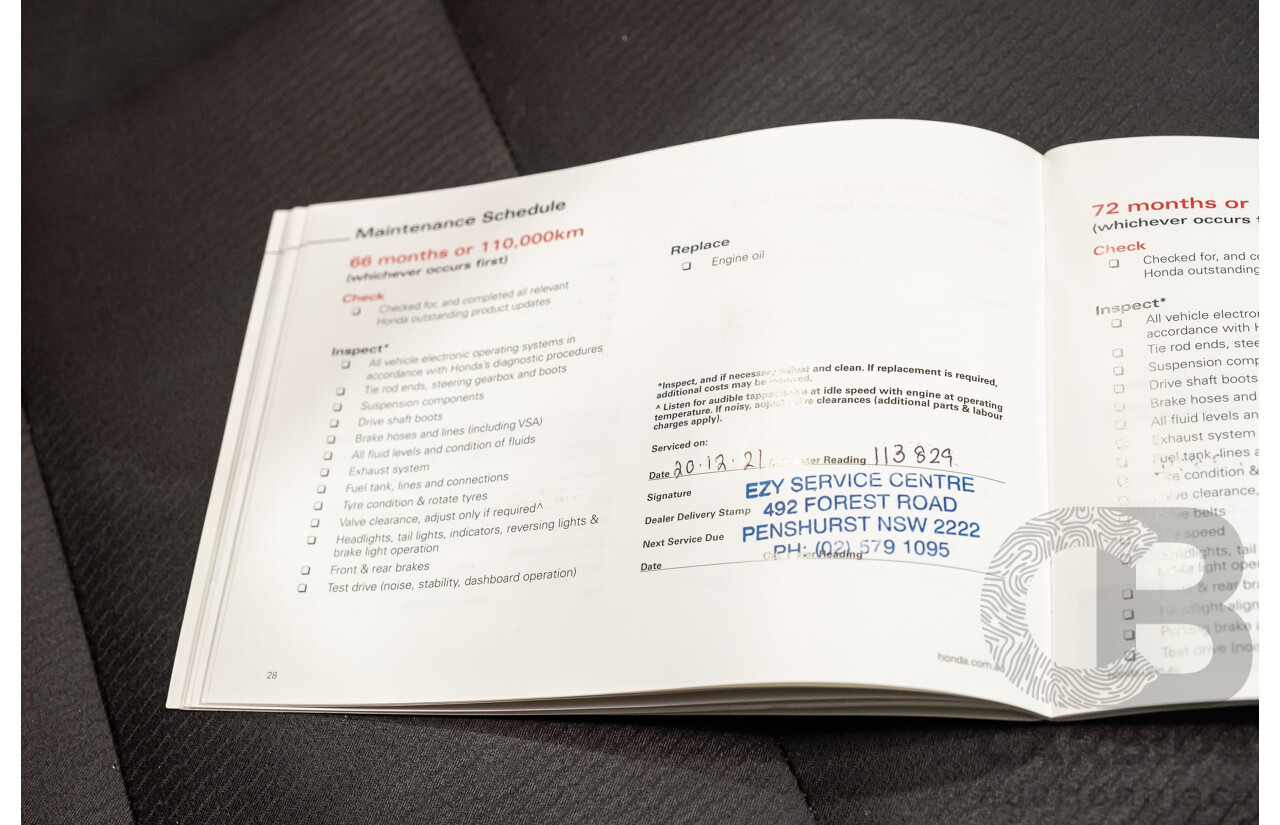 Maintenance Schedule
66 months or 110,000km
(whichever occurs first)
Check
Checked for, and completed all relevant
Honda outstanding product updates
Inspect*
All vehicle electronic operating systems in
accordance with Honda's diagnostic procedures
Tie rod ends, steering gearbox and boots
Suspension components
Drive shaft boots
Brake hoses and lines (including VSA)
All fluid levels and condition of fluids
Exhaust system
Fuel tank, lines and connections
Tyre condition & rotate tyres
Valve clearance, adjust only if required^
Headlights, tail lights, indicators, reversing lights &
brake light operation
Front & rear brakes
Test drive (noise, stability, dashboard operation)
28
Replace
Engine oil
*Inspect, and if necessary adjust and clean. If replacement is required,
additional costs may be
^ Listen for audible tappet noise at idle speed with engine at operating
temperature. If noisy, adjust clearances (additional parts & labour
charges apply).
Serviced on:
Date 20.12.21 Reading 113829
Signature
Dealer Delivery Stamp
Next Service Due
Date Reading
EZY SERVICE CENTRE
492 FOREST ROAD
PENSHURST NSW 2222
PH: (02) 579 1095
honda.com.
72 months or
(whichever occurs
Check
Checked for, and
Honda outstanding
Inspect*
All vehicle
accordance with
Tie rod ends,
Suspension
Drive shaft boots
Brake hoses and
All fluid levels
Exhaust system
Fuel tank, lines
condition &
clearance,
belts
speed
tail
light
& rear
Headlight
Parking brake
Test drive
CB